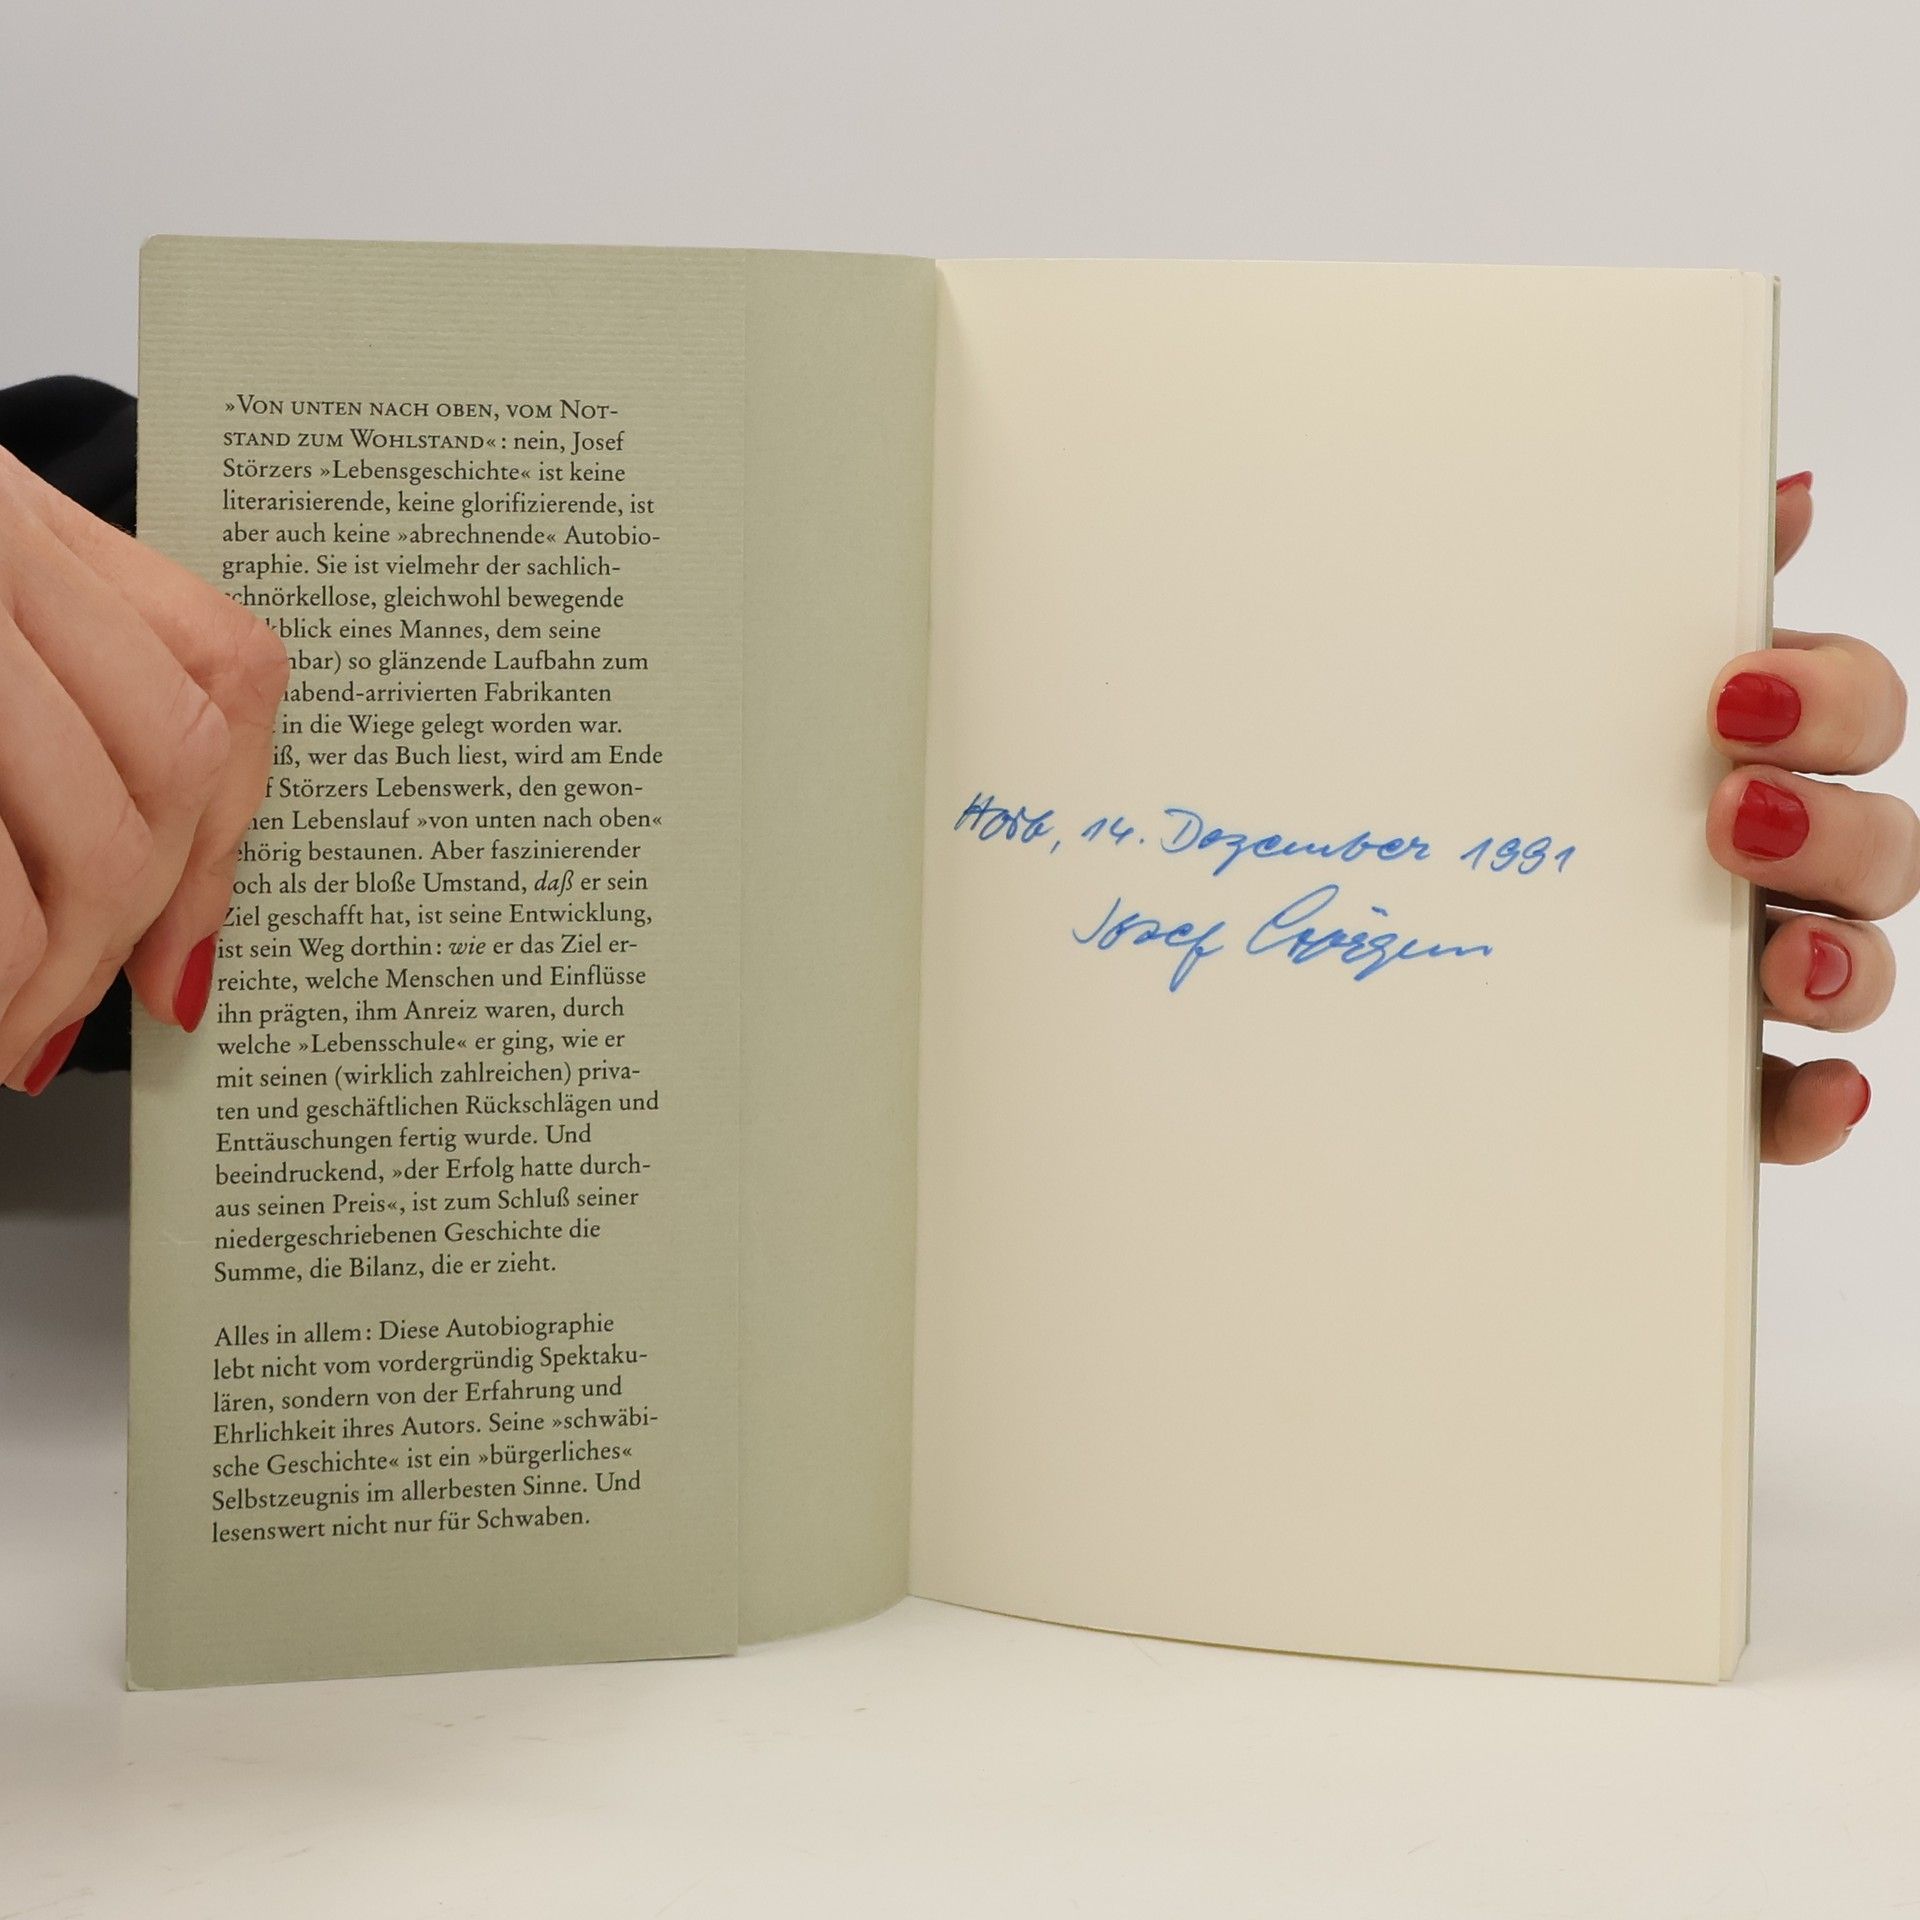 »VON UNTEN NACH OBEN, VOM NOT-
STAND ZUM WOHLSTAND«: nein, Josef
Störzers »Lebensgeschichte« ist keine
literarisierende, keine glorifizierende, ist
aber auch keine »abrechnende« Autobio-
graphie. Sie ist vielmehr der sachlich-
schnörkellose, gleichwohl bewegende
kblick eines Mannes, dem seine
nbar) so glänzende Laufbahn zum
abend-arrivierten Fabrikanten
in die Wiege gelegt worden war.
iß, wer das Buch liest, wird am Ende
f Störzers Lebenswerk, den gewon-
nen Lebenslauf »von unten nach oben«
ehörig bestaunen. Aber faszinierender
och als der bloße Umstand, daß er sein
Ziel geschafft hat, ist seine Entwicklung,
ist sein Weg dorthin: wie er das Ziel er-
reichte, welche Menschen und Einflüsse
ihn prägten, ihm Anreiz waren, durch
welche »Lebensschule« er ging, wie er
mit seinen (wirklich zahlreichen) priva-
ten und geschäftlichen Rückschlägen und
Enttäuschungen fertig wurde. Und
beeindruckend, »der Erfolg hatte durch-
aus seinen Preis«, ist zum Schluß seiner
niedergeschriebenen Geschichte die
Summe, die Bilanz, die er zieht.
Alles in allem: Diese Autobiographie
lebt nicht vom vordergründig Spektaku-
lären, sondern von der Erfahrung und
Ehrlichkeit ihres Autors. Seine »schwäbi-
sche Geschichte« ist ein »bürgerliches«
Selbstzeugnis im allerbesten Sinne. Und
lesenswert nicht nur für Schwaben.
Horb, 14. Dezember 1991
Josef